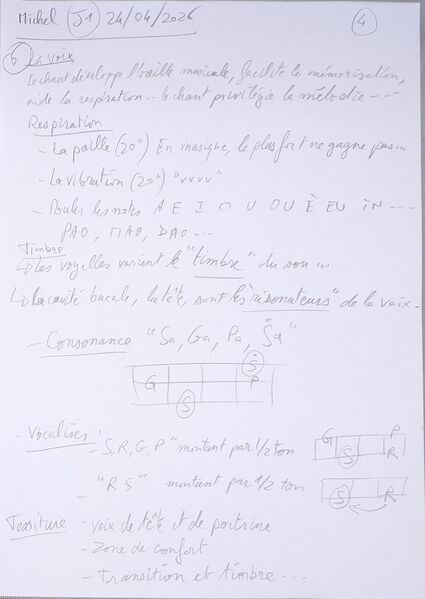 Michel J1 24/04/2026
4
6 La voix
Le chant développe l'oreille musicale, facilite la mémorisation,
aide la respiration.. le chant privilégie la mélodie ---
Respiration
- La paille (20") En musique, le plus fort ne gagne pas...
- La vibration (20") "vvvv"
- Rouler les notes A E I O U OU È EU IN ----
PAO, MAO, DAO ---
Timbre
↳ Les voyelles varient le "timbre" du son ...
↳ La cavité bucale, la tête, sont les "résonateurs" de la voix -
- Consonance "Sa, Ga, Pa, Ṡa"
Ṡ
G P
S
- Vocalises - "S, R, G, P" montant par 1/2 ton
G P
S R
- "R S" montant par 1/2 ton
S R
Tessiture - voix de tête et de poitrine
- Zone de confort
- Transition et timbre ...